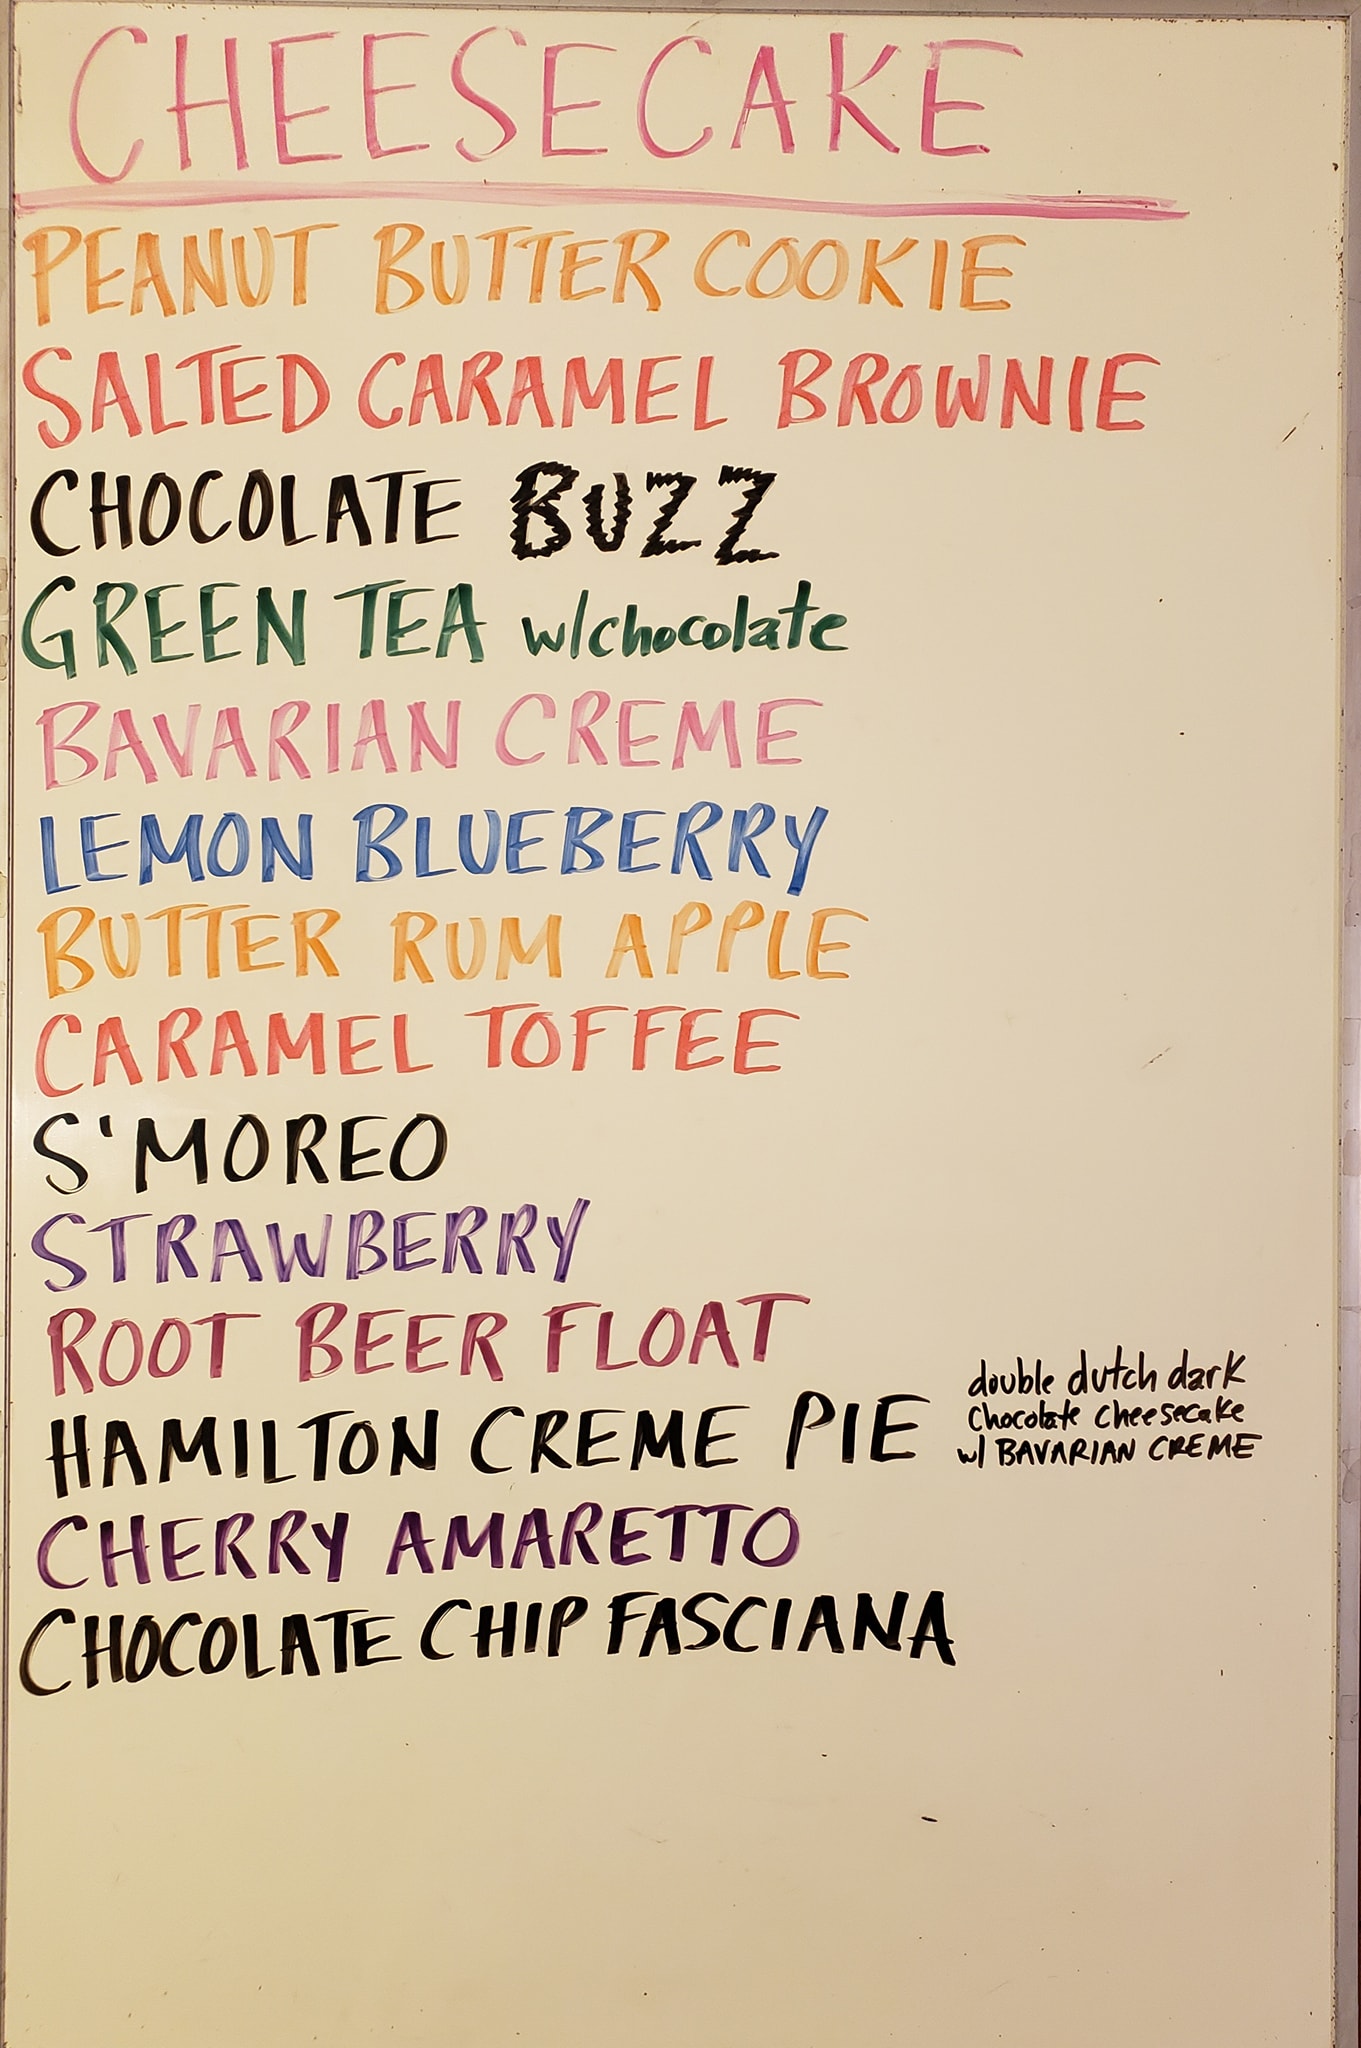 CHEESECAKE
PEANUT BUTTER COOKIE
SALTED CARAMEL BROWNIE
CHOCOLATE BUZZ
GREEN TEA w/chocolate
BAVARIAN CREME
LEMON BLUEBERRY
BUTTER RUM APPLE
CARAMEL TOFFEE
S'MOREO
STRAWBERRY
ROOT BEER FLOAT
HAMILTON CREME PIE
double dutch dark
chocolate cheesecake
w/ BAVARIAN CREME
CHERRY AMARETTO
CHOCOLATE CHIP FASCIANA